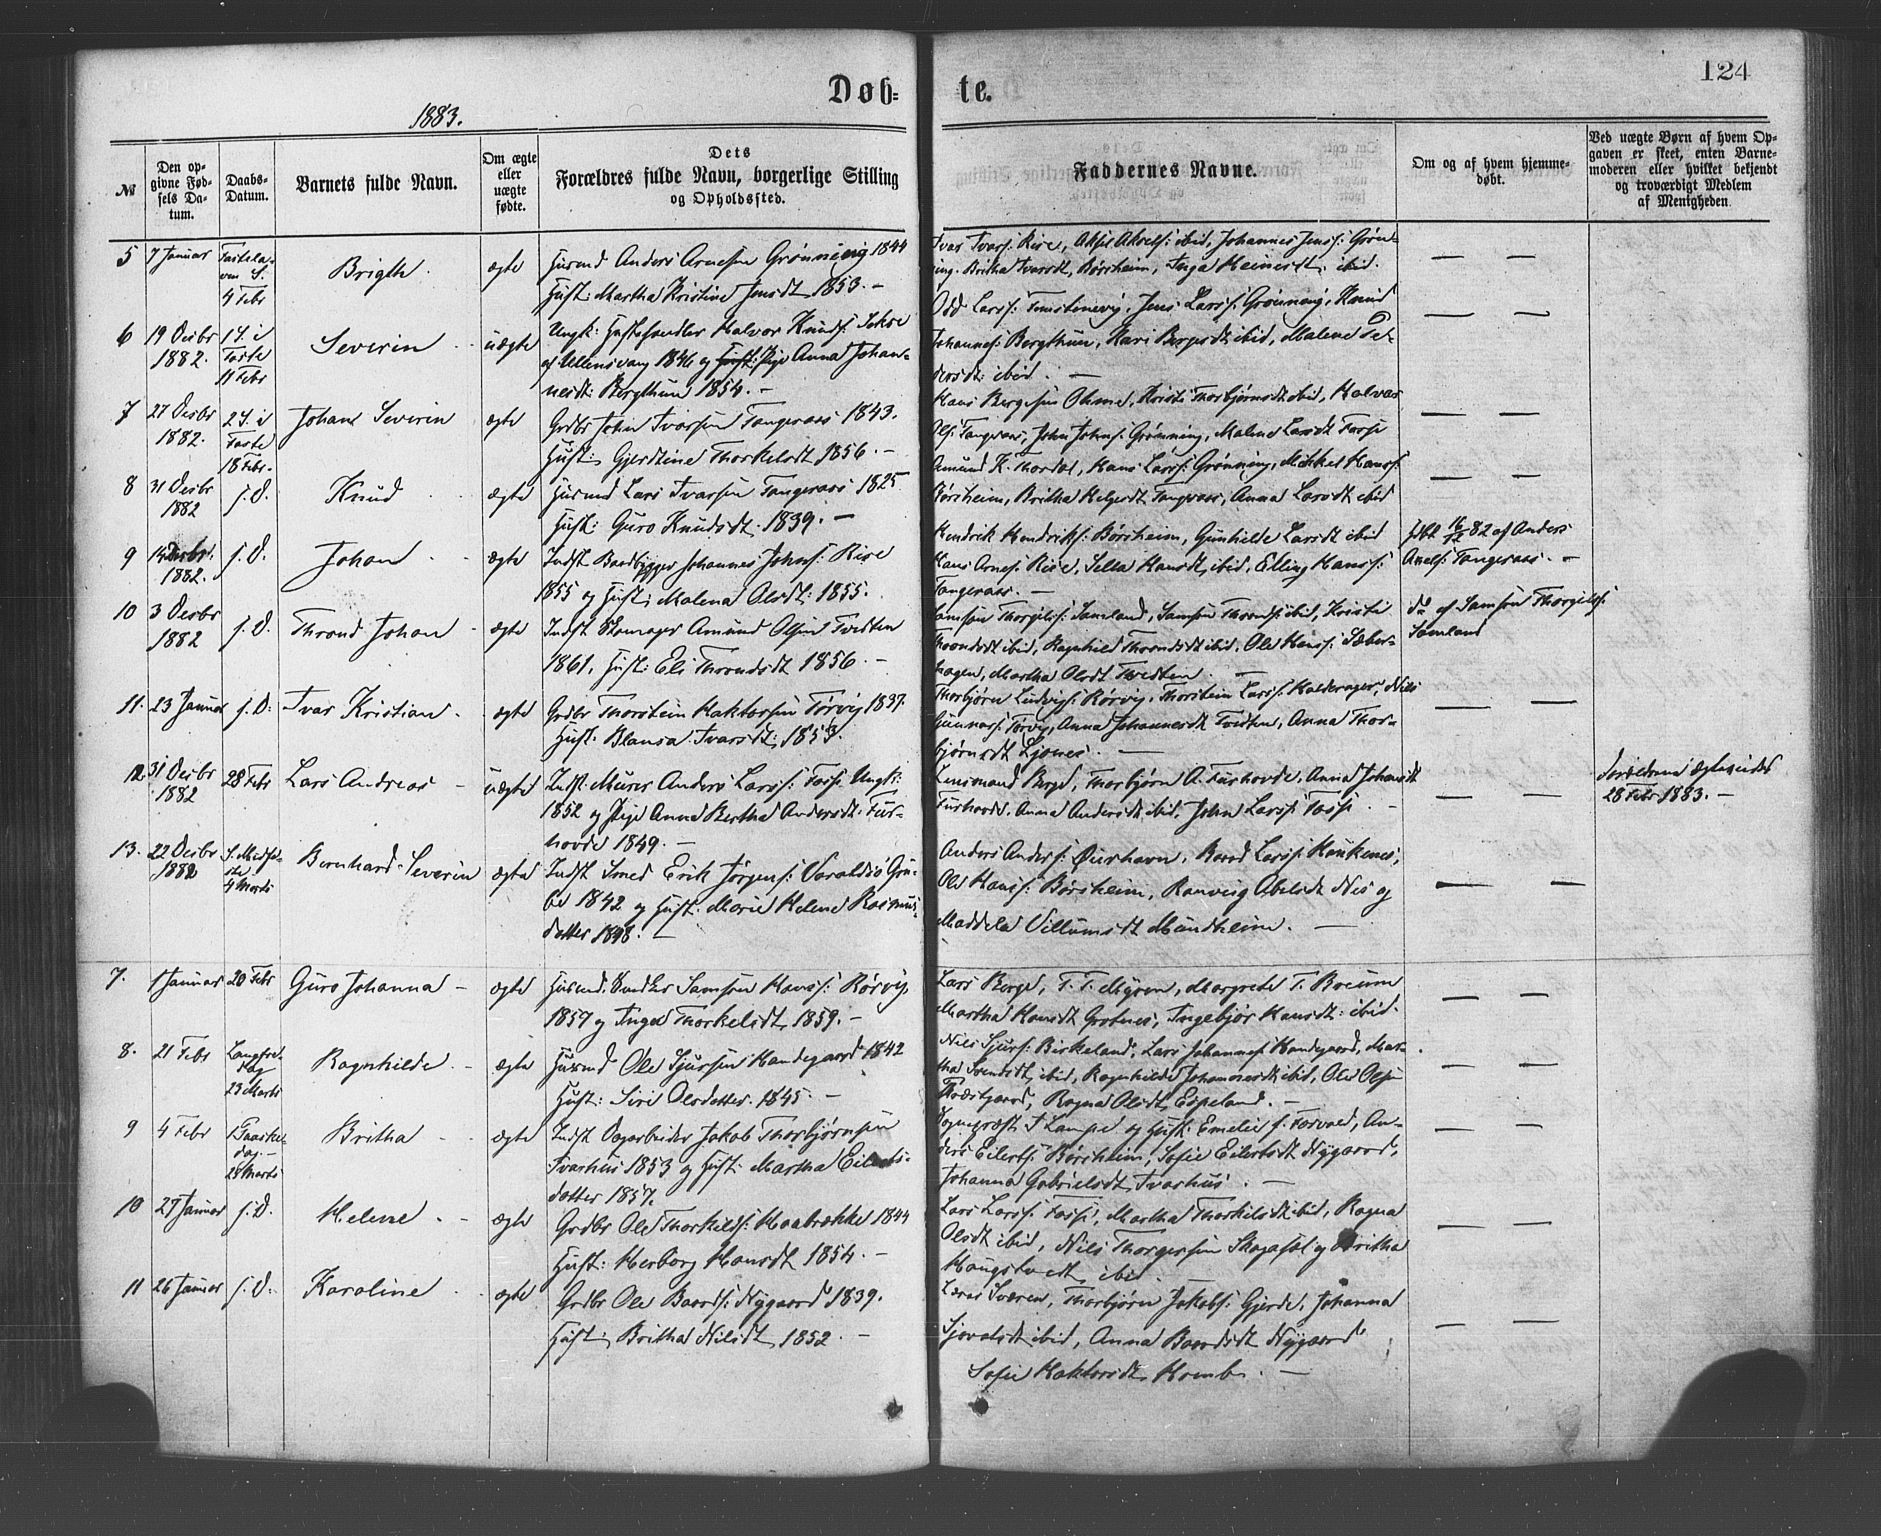 124
Døb=
te.
1883.
№
Den op-
givne Fød-
sels Da-
tum.
Daabs-
Datum.
Barnets fulde Navn.
Om ægte
eller
uægte
fødte.
Dets
Forældres fulde Navn, borgerlige Stilling
og Opholdssted.
Faddernes Navne.
Om og af hvem hjemme-
døbt.
Ved uægte Børn af hvem Op-
gaven er skeet, enten Barne-
moderen eller hvilket bekjendt
og troværdigt Medlem
af Menigheden.
5 7 Januar Fastela-
vns S.
4 Febr
Brigth
ægte
Husmd Anders Arnesen Grønnevig 1844
Hust. Martha Kristine Jensdt 1853. —
Ivar Ivars: Rise, Aksel Aksels: ibid, Johannes Jens: Grøn-
ning. Britha Ivarsdt, Børsheim, Inga Heinesdt: ibid.
— —
6 19 Desbr
1882.
1 S. i
Faste
11 Febr
Severin
uægte
Ungk: Halvor Knuds:
af Ullensvang 1846 og Pige Anna Johan-
nesdt: Bergthun 1854. —
Odd Lars: Jens Lars: Grønning, Knud
Johannes: Bergthun, Kari Bergesdt ibid, Malene Pe-
dersdt: ibid. —
— —
7 27 Desbr
1882.
2 S. i
Faste
18 Febr.
Johan Severin
ægte
Grdbr John Ivarsen Tangeraas 1843.
Hust: Gjertine Thorkelsdt 1856. —
Hans Bergesen Ohme, Kristi Thorbjørnsdt ibid, Halvor
Ols: Tangeraas, John Johns: Grønning, Malene Larsdt Fosse
— —
8 31 Desbr
1882
s. D.
Knud
ægte
Husmd Lars Ivarsen Tangeraas 1825
Hust: Guro Knudsdt. 1839. —
Amund K. Thordal, Hans Lars: Grønning, Mikkel Hans:
Børsheim, Britha Helgesdt Tangeraas, Anna Larsdt ibid
— —
9 14 Desbr.
1882.
s. D.
Johan
ægte
Indst Baadbygger Johannes Johns: Rise
1855 og Hust: Malena Olsdt: 1855.
Hendrik Hendriks: Børsheim, Gunhilde Larsdt ibid
Hans Arnes: Rise, Sella Hansdt, ibid, Elling Hans:
Tangeraas. —
Hdbt 16/12 82 af Anders
Axels: Tangeraas. —
10 3 Desbr
1882
s. D.
Thrond Johan
ægte
Indst Skomager Amund Olsen Tvedten
1861, Hust: Eli Throndsdt 1856. —
Samson Thorgils: Samland, Samson Thronds: ibid, Kristi
Throndsdt ibid, Ragnhild Throndsdt ibid, Ole Hans: Sæber-
hagen, Martha Olsdt Tvedten. —
do af Samson Thorgils:
Samland
11. 23 Januar s. D.
Ivar Kristian
ægte
Grdbr Thorstein Haktorsen Tørvig 1837.
Hust. Blansa Ivarsdt: 1853.
Thorbjørn Ludvigs: Rørvig, Thorstein Lars: Nils
Gunnars: Tørvig, Anna Johannesdt Tvedten, Anna Thor-
bjørnsdt Ljones. —
— —
12. 31 Desbr
1882
28 Febr
Lars Andreas
uægte
Indst. Murer Anders Lars: Fosse Ungk:
1852 og Pige Anna Bertha Andersdt: Fur-
hovde 1849. —
Lensmand Berge, Thorbjørn A. Furhovde, Anna Johansdt
Furhovde, Anna Andersdt ibid, John Lars: Fosse
— —
Forældrene ægteviedes
28 Febr 1883. —
13. 22 Desbr
1882
S. Midfa-
ste
4 Marts
Bernhard Severin
ægte
Indst Smed Erik Jørgens: Varaldsø Gru-
be 1842 og Hust: Marie Helene Rasmus-
datter 1848. —
Anders Anders: Øierhavn, Baard Lars: Haukenes,
Ole Hans: Børsheim, Ranveig Abelsdt Nes og
Maddela Villumsdt Mundheim. —
— —
7. 1 Januar 28 Febr
Guro Johanna
ægte
Husmd. Samson Hans: Rørvig
1857 og Inga Thorkelsdt 1859. —
Lars Berge, T. T. Myren, Margrete T. Breum
Martha Hansdt Grotnes, Ingebjør Hansdt: ibid.
— —
8. 21 Febr Langfre-
dag
23 Marts
Ragnhilde
ægte
Husmd Ole Sjursen Handegaard 1842
Hust: Siri Olsdatter. 1845. —
Nils Sjurs: Birkeland, Lars Johannes: Handegaard, Mar-
tha Svendsdt ibid, Ragnhilde Johannesdt ibid, Ole Olsen
Ragna Olsdt, Espeland. —
— —
9 4 Febr 1 Paaske-
dag —
25 Marts
Britha
ægte
Indst Dagarbeider Jakob Thorbjørnsen
Ivarhus 1853 og Hust: Martha Eilerts-
datter 1857.
Sognepræst J Lampe og Hust: Emelie f. An-
ders Eilerts: Børsheim, Sofie Eilertsdt Nygaard,
Johanna Gabrielsdt, Ivarhus. —
— —
10 27 Januar s. D.
Helene
ægte
Grdbr Ole Thorkilds: Haabrække 1844
Hust: Herborg Hansdt 1854. —
Lars Lars: Fosse, Martha Thorkelsdt ibid, Ragna
Olsdt ibid, Nils Thorgersen Skogasæl og Britha
Haugstvedt, ibid.
— —
11 26 Januar s. D.
Karoline
ægte
Grdbr Ole Baards: Nygaard 1839.
Hust: Britha Nilsdt, 1852. —
Lærer Sværen, Thorbjørn Jakobs: Gjerde, Johanna
Sjovatsdt ibid, Anna Baardsdt Nygaard
Sofie Haktorsdt, Kambe. —
— —